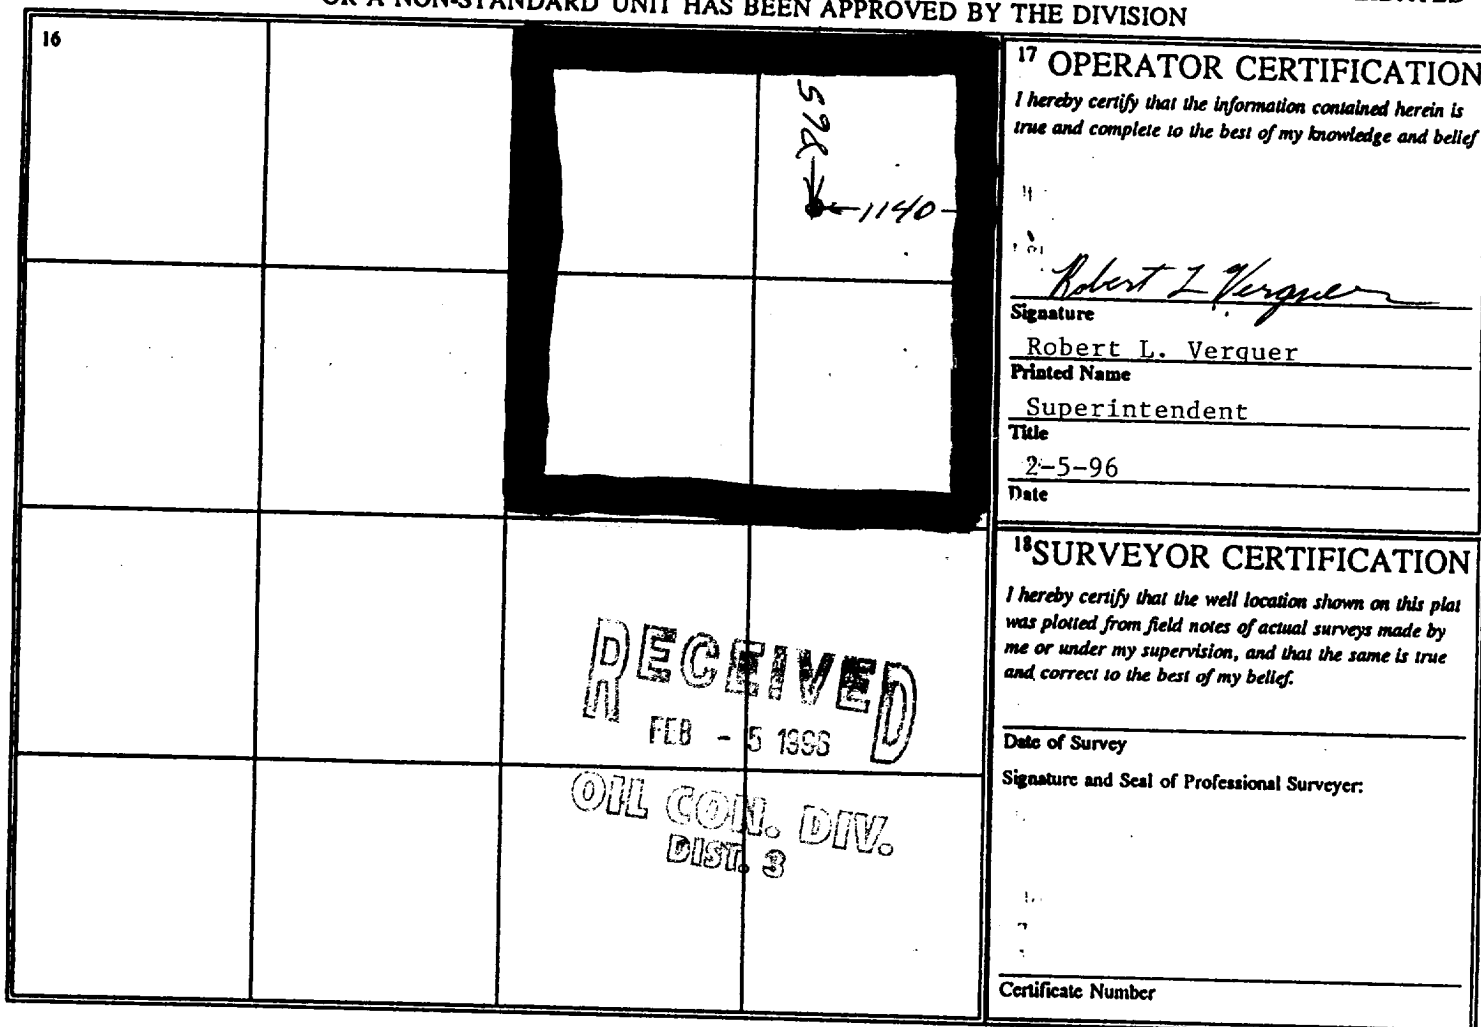 OR A NON-STANDARD UNIT HAS BEEN APPROVED BY THE DIVISION
16
1140
17 OPERATOR CERTIFICATION
I hereby certify that the information contained herein is
true and complete to the best of my knowledge and belief
Robert L Verquer
Signature
Robert L. Verquer
Printed Name
Superintendent
Title
2-5-96
Date
18 SURVEYOR CERTIFICATION
I hereby certify that the well location shown on this plat
was plotted from field notes of actual surveys made by
me or under my supervision, and that the same is true
and correct to the best of my belief.
Date of Survey
Signature and Seal of Professional Surveyer:
Certificate Number
RECEIVED
FEB - 5 1996
OIL CON. DIV.
DIST. 3